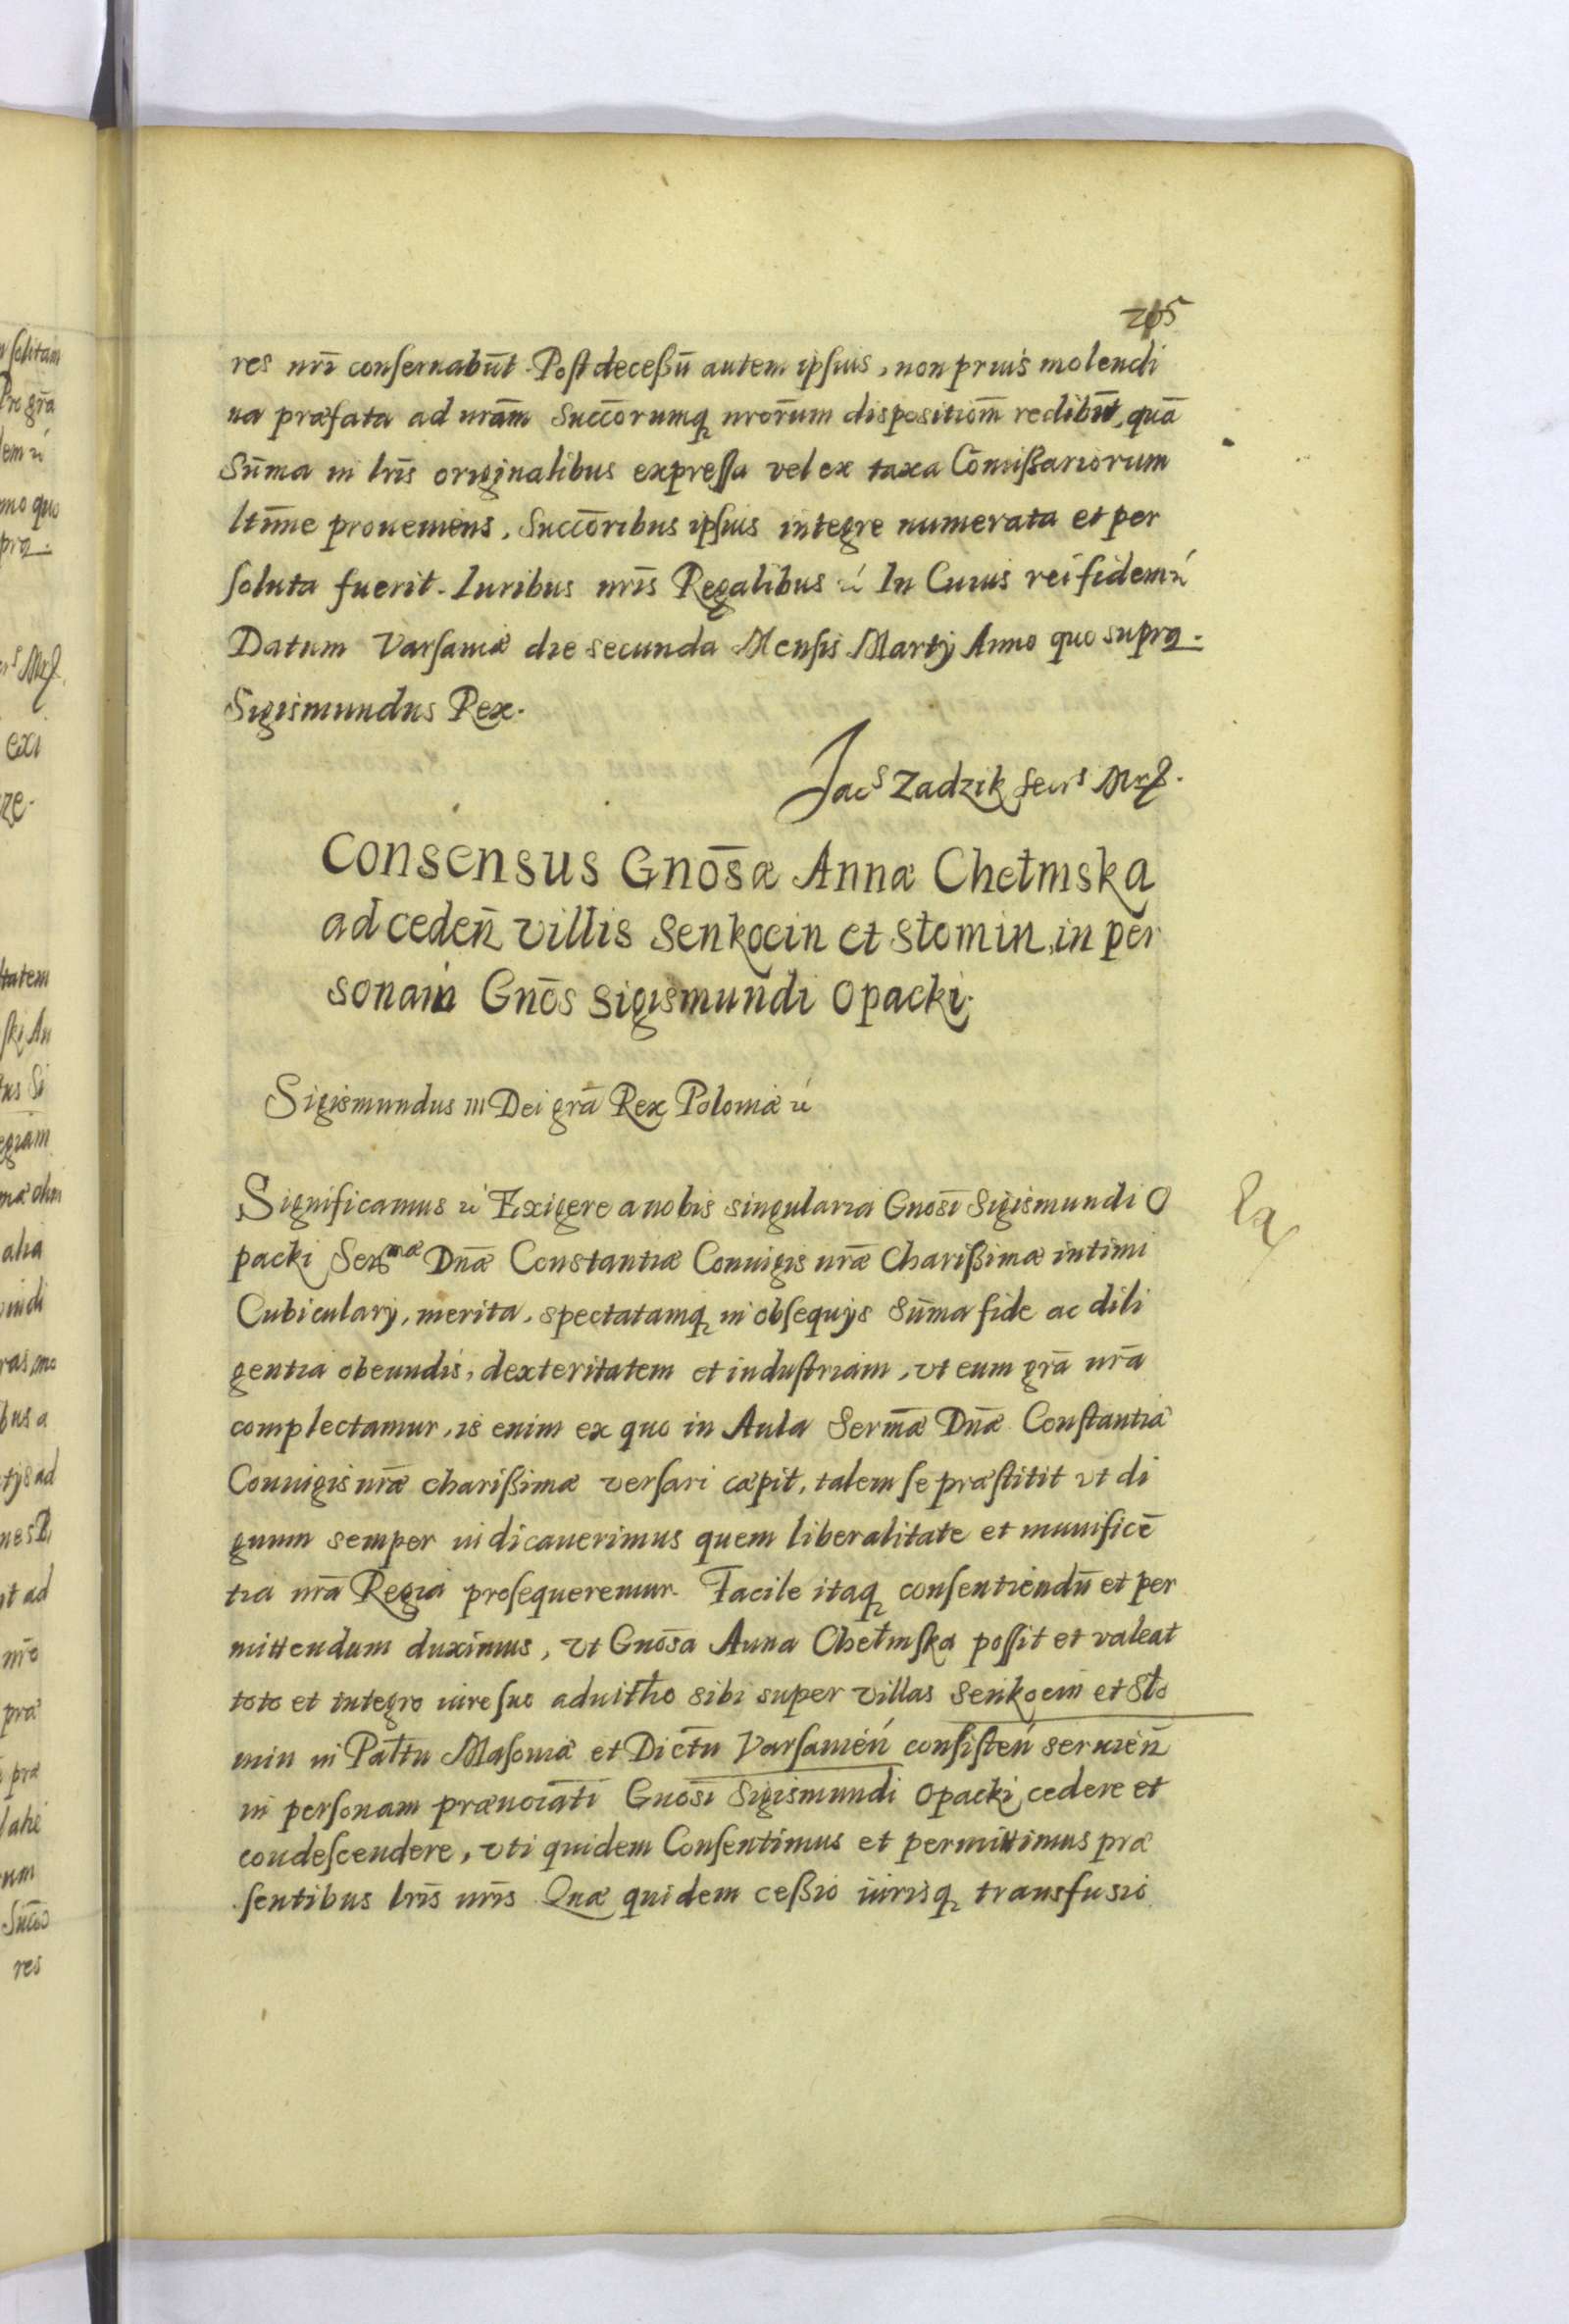 res nr̄i conseruabūt. Post decessū autem ipsius, non prius molendi
na præfata ad nrām Succōrumq nrōrum dispositiōm redibūt, quā
Sūma in lrīs originalibus expressa vel ex taxa Cōmissariorum
ltīme proueniens, Succōribus ipsius integre numerata et per
soluta fuerit. Iuribus nrīs Regalibus ꝛć In Cuius rei fidem ꝛć
Datum Varsauiæ die secunda Mensis Martij Anno quo supra.
Sigismundus Rex.
Jac⁠ˢ Zadzik Secrˢ
Consensus Gnōsæ Annæ Chełmska
ad cedeñ villis Senkocin et Stomin, in per
sonam Gnōs Sigismundi Opacki.
Sigismundus III Dei grā Rex Poloniæ ꝛć
Significamus ꝛć Exigere a nobis singularia Gnōsi Sigismundi O
packi Serᵐᵃᵉ Dnǣ Constantiæ Coniugis nrǣ Charissimæ intimi
Cubicularij, merita, spectatamq in obsequijs Sūma fide ac dili
gentia obeundis, dexteritatem et industriam, vt eum grā nrā
complectamur, is enim ex quo in Aula Sermǣ Dnǣ Constantiæ
Coniugis nrǣ charissimæ versari cæpit, talem se præstitit vt di
gnum semper iudicauerimus quem liberalitate et munificē
tia nrā Regia prosequeremur. Facile itaq consentiendū et per
mittendum duximus, vt Gnōsa Anna Chełmska possit et valeat
toto et integro iure suo aduithō sibi super villas Senkocin et Sto
min in Pałtu Masouiæ et Dictū Varsauień consisteń seruień
in personam prænoiati Gnosī Sigismundi Opacki cedere et
condescendere, vti quidem Consentimus et permittimus præ
sentibus lrīs nrīs Quæ quidem cessio iurisq transfusio